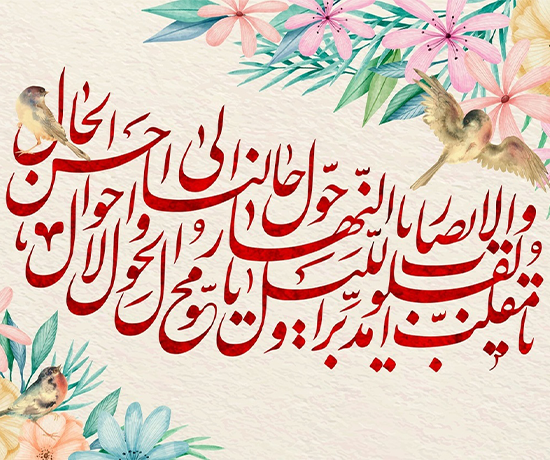 یا مقلّب القلوب و الابصار
یا مدبّر اللّیل و النّهار
یا محوّل الحول و الاحوال
حوّل حالنا الی احسن الحال